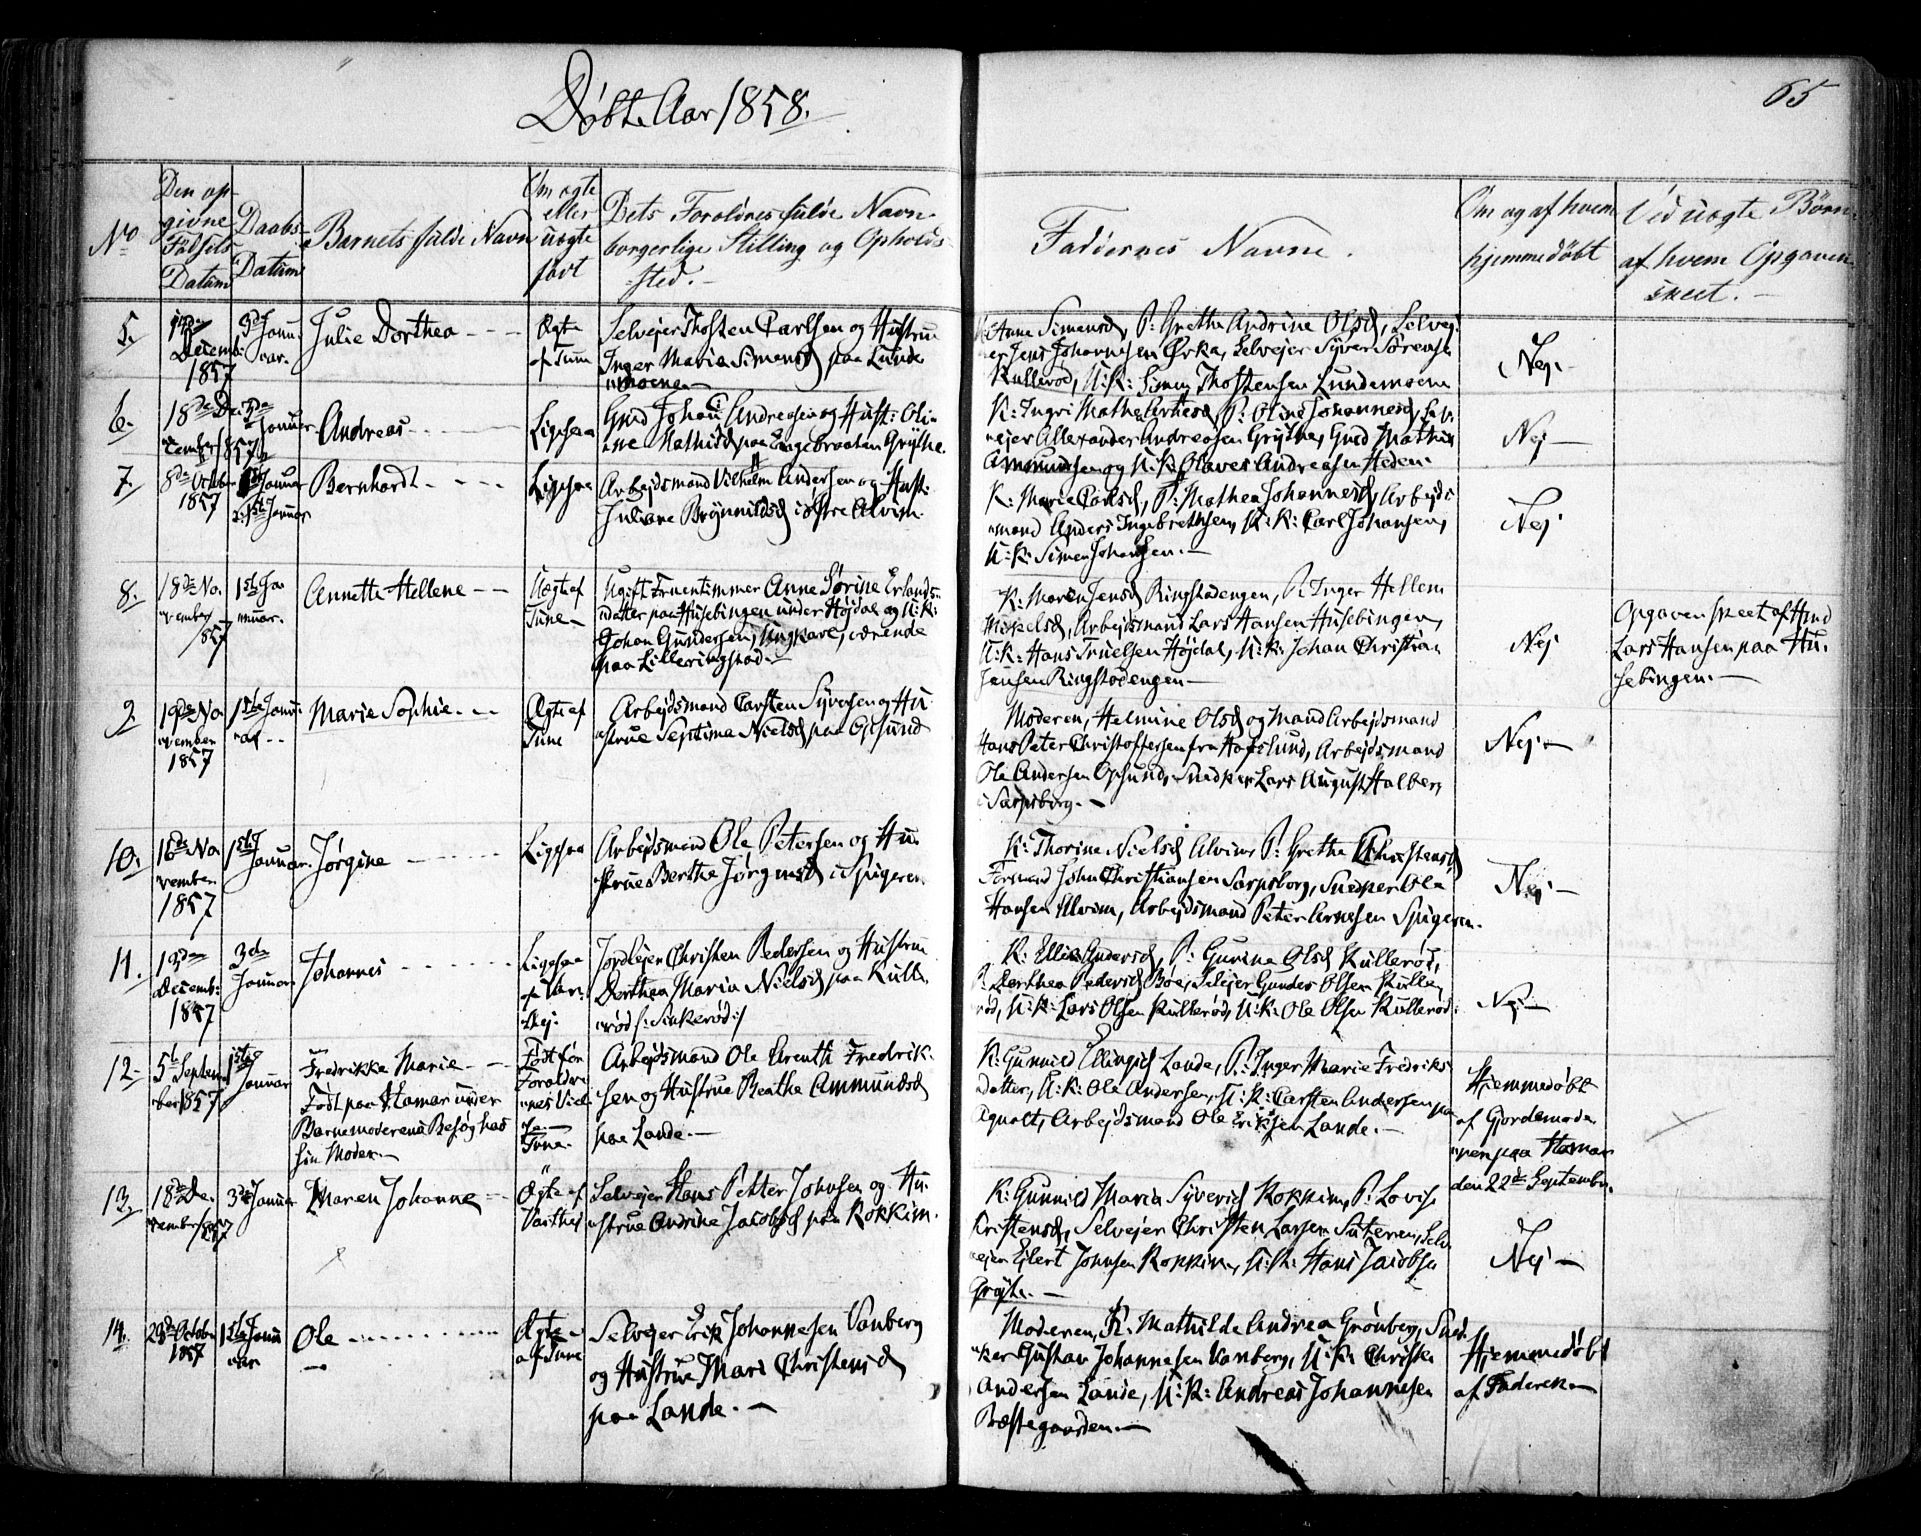 Døbte Aar 1858.
65
No
Den op-
givne
Fødsels
Datum
Daabs-
Datum
Barnets fulde Navn
Om ægte
eller
uægte
født
Dets Forældres fulde Navn
borgerlige Stilling og Opholds-
sted.
Faddernes Navne.
Om og af hvem
hjemmedøbt
Ved uægte Børn
af hvem Opgaven
skeet.
5.
Decemb:
1857
3d Janu-
ar.
Julie Dorthea
Ægte
af Tune
Selvejer Thosten Carlsen og Hustru
Inger Maria Simensd paa Lunde
moenen
Anne Simensd, P: Grethe Andrine Olsd, Selvej-
er Jens Johannesen Ørke, Selvejer Syver Sørensen
Kullerød, U:K: Simen Thostensen Lundemoene
Nej.
6.
18de De-
cember 1857
Januar
Andreas
Ligesaa
Gmd Johan Andreasen og Hust: Oli-
ne Mathisd paa Engebraaten Grythe.
K: Ingri Mathea P: Oline Johannesd, Selv-
ejer Allexander Andreasen Grythe, Gmd Mathias
Amundsen og U:K: Olaves Andreasen Heden
Nej
7.
8de October
1857
1st Januar
Bernhardt
Ligesaa
Arbejdsmand Vilhelm Andersen og Hust:
Juliane Brynnildsd i østre Alvim.
K: Marie Carlsd, P: Mathea Johannesd, Arbejds-
mand Anders Ingebrethsen, U:K: Carl Johansen,
U:K: Simen Johansen.
Nej
8.
18de No-
vember
1857
1ste Ja-
nuar.
Annette Hellene
Uægte af
Tune
Ugift Fruentimmer Anne Sørine Erlands-
datter paa Husebingen under Højdal og U:K:
Johan Gundersen, Ungkarl, værende
paa Lilleringstad
K: Maren Jensd Ringstadengen, P: Inger Hellene
Mikelsd, Arbejdsmand Lars Hansen Husebingen,
U:K: Hans Truelsen Højdal, U:K: Johan Christian
Jensen Ringstadengen
Nej
Opgaven skeet af Hmd
Lars Hansen paa Hu-
sebingen.
9.
19de No-
vember
1857
1ste Janu-
ar
Marie Sophie
Ægte af
Tune
Arbejdsmand Carsten Syversen og Hu-
strue Septima Nielsd paa Opsund
Moderen, Helmine Olsd og Mand Arbejdsmand
Hans Peter Christoffersen fra Hafslund, Arbejdsmand
Ole Andersen Opsund, Snedker Lars August Halberg
i Sarpsborg.
Nej
10.
16de No-
vember
1857
1ste
Januar
Jørgine
Ligesaa
Arbejdsmand Ole Petersen og Hu-
strue Berthe Jørgensd i Spigeren
K: Thorine Nielsd Alvim P: Grethe Christensd
Formand John Christiansen Sarpsborg, Snedker Ole
Hansen Alvim, Arbejdsmand Peter Arnesen Spigeren.
Nej
11.
13de
Decemb:
1857
3die
Januar
Johannes
Ligesaa
af Var-
tej:
Jordlejer Christen Pedersen og Hustrue
Dorthea Maria Nielsd paa Kulle-
rød /: Sinkerød:/
K: Ellie Andersd, P: Gurina Olsd Kullerød,
P: Dorthea Pedersd Bøe, Selejer Gunder Olsen Kulle-
rød, U:K: Lars Olsen Kullerød, U:K: Ole Olsen Kullerød
Nej
12.
5te Septem-
ber 1857
1ste
Januar
Fredrikke Marie
Født paa Hamar under
Barnemoderens Besøg hos
sin Moder.
Født før
Foraldre-
nes Viel-
se
Tune
Arbejdsmand Ole Arenth Fredrik-
sen og Hustrue Beathe Ammundsd
paa Lande.
K: Gunnild Ellingsd Lande, P: Inger Marie Fredriks-
datter, U:K: Ole Andersen, U:K: Carsten Andersen paa
Agnalt, Arbejdsmand Ole Eriksen Lande.
Hjemmedøbt
af Gjordemode-
ren paa Hamar
den 22de September.
13.
18de De-
cember 1857
3die Januar
Maren Johanne
Ægte af
Varthej
Selvejer Hans Petter Johnsen og Hu-
strue Andrine Jacobsd paa Kokkim.
K: Gunnild Maria Syversd Kokkim, P: Lovise
Kristensd, Selvejer Christen Larsen Suteren, Selv-
ejer Ejlert Johnsen Kokkim, U:K: Hans Jacobsen
Grøtte.
Nej
14.
28de October
1857
1ste Janu-
ar
Ole
Ægte
af Tune
Selvejer Erik Johannesen Vanberg
og Hustrue Mari Christensd
paa Lande.
Moderen, K: Mathilde Andrea Grønberg, Sned-
ker Gustav Johannesen Vanberg, U:K: Christen
Andersen Lande, U:K: Andreas Johannesen
Præstegaarden.
Hjemmedøbt
af Faderen